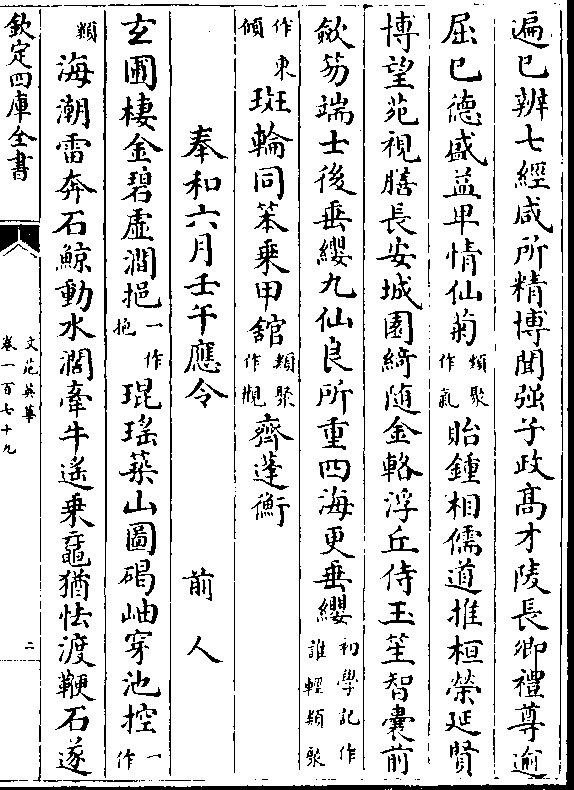 遍巳辨七經咸所精博聞强子政髙才陵長卿禮尊逾
屈已德盛益卑情仙菊類聚作氣貽鍾相儒道推桓榮延賢
博望苑視膳長安城園綺随金輅浮丘侍玉笙智囊前
歛笏端士後垂纓九仙良所重四海更垂纓初學記作誰輕類聚
作東傾斑輪同䇳乗甲舘類聚作觀齊蓬衡
奉和六月壬午應令 前人
玄圃棲金碧虚澗挹一作抱琨瑤築山圖碣岫穿池控一作
類海潮雷奔石鯨動水濶牽牛遙乗黿猶怯渡鞭石遂
欽定四庫全書
文苑英華
卷一百七十九
二